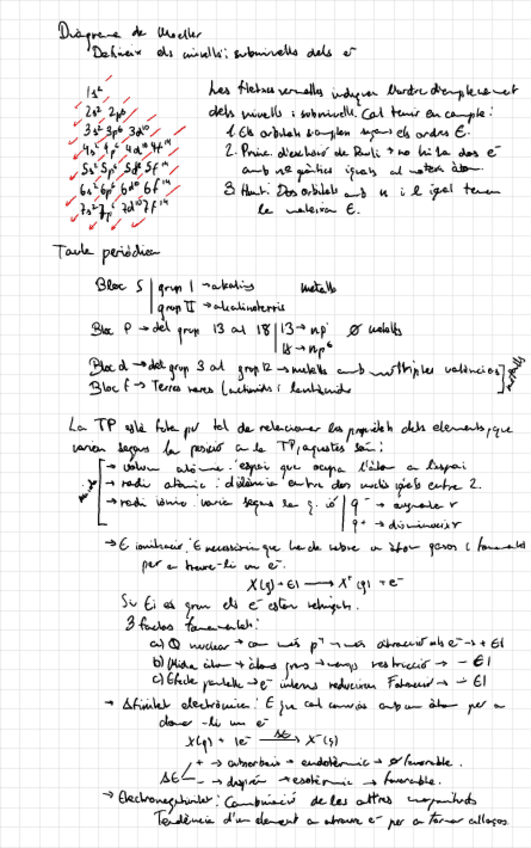 Diagrama de Moeller
Defineix els nivells i subnivells dels e⁻
1s²
2s² 2p⁶
3s² 3p⁶ 3d¹⁰
4s² 4p⁶ 4d¹⁰ 4f¹⁴
5s² 5p⁶ 5d¹⁰ 5f¹⁴
6s² 6p⁶ 6d¹⁰ 6f¹⁴
7s² 7p⁶ 7d¹⁰ 7f¹⁴
Les fletxes vermelles indiquen l'ordre d'emplenament
dels nivells i subnivells. Cal tenir en compte:
1. Els orbitals s'omplen segons els ordres E.
2. Princ. d'exclusió de Pauli → no hi ha dos e⁻
amb nº quàntics iguals al mateix àtom.
3. Hund: Dos orbitals amb n i l igual tenen
la mateixa E.
Taula periòdica
Bloc S | grup I → alcalins metalls
grup II → alcalinoterris
Bloc P → del grup 13 al 18 | 13 → np¹ Ø metalls
18 → np⁶
Bloc d → del grup 3 al grup 12 → metalls amb múltiples valències ] metalls
Bloc f → Terres rares (actínids i lantànids
La TP està feta per tal de relacionar les propietats dels elements, que
varien segons la posició a la TP, aquestes són:
→ volum atòmic: espai que ocupa l'àtom a l'espai
→ radi atòmic: distància entre dos nuclis iguals entre 2.
→ radi iònic: varia segons la q. ió | q⁻ → augmenta r
q⁺ → disminueix r
→ E ionització: E necessària que ha de rebre un àtom gasós i fonamental
per a treure-li un e⁻.
X(g) + EI → X⁺(g) + e⁻
Si Ei és gran els e⁻ estan retinguts.
3 factors fonamentals:
a) Q nuclear → com més p⁺ → més atracció als e⁻ → + EI
b) Mida àtom → àtoms grans → menys restricció → - EI
c) Efecte pantalla → e⁻ interns redueixen l'atracció → - EI
→ Afinitat electrònica: E que cal amb un àtom per a
donar-li un e⁻
X(g) + 1e⁻ → X⁻(g)
ΔE + → absorbeix → endotèrmic → Ø favorable.
- → desprèn → exotèrmic → favorable.
→ Electronegativitat: Combinació de les altres magnituds
Tendència d'un element a atraure e⁻ per a formar enllaços.